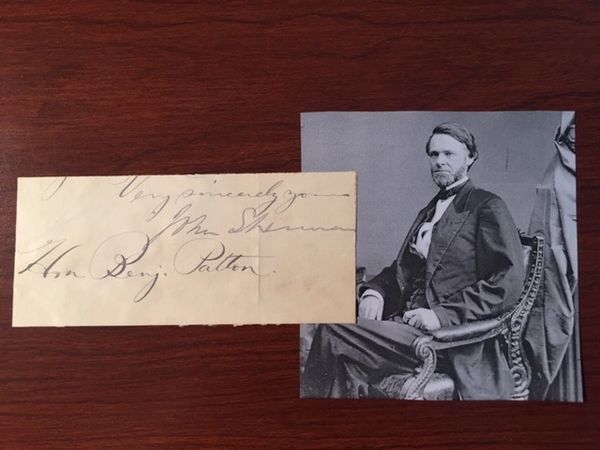 Very sincerely yours
John Sherman
Hon. Benj. Patton.